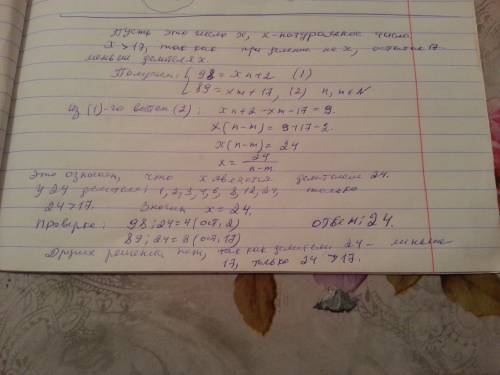 Пусть это число x, x-натуральное число
x > 17, так как при делении на x, остаток 17
меньше делителя x.
Получим: { 98 = xn+2 (1)
89 = xm + 17, (2) n, m ∈ N
Из (1)-го вычтем (2): xn+2-xm-17=9.
x(n-m) = 9+17-2.
x(n-m) = 24
x = 24/(n-m)
Это означает, что x является делителем 24.
У 24 делители: 1, 2, 3, 4, 6, 8, 12, 24, только
24 > 17. Значит x = 24.
Проверка: 98:24=4 (ост. 2) Ответ: 24.
89:24=3 (ост. 17)
Других решений нет, так как делители 24 - меньше
17, только 24 > 17.